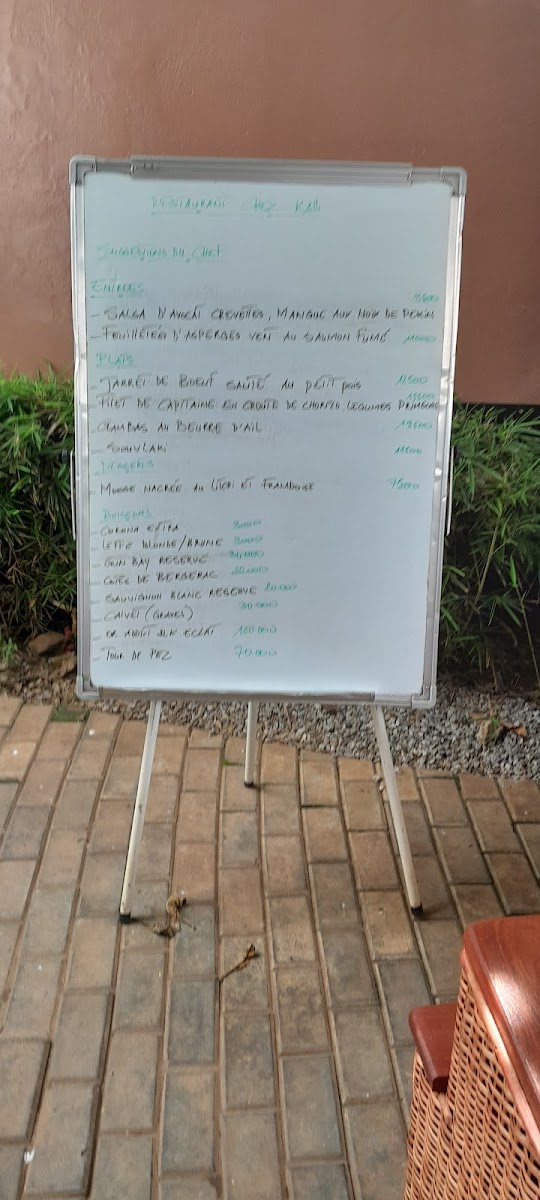 RESTAURANT CHEZ KALI
SUGGESTIONS DU CHEF
ENTREES
- SALSA D'AVOCAT CREVETTES, MANGUE AUX NOIX DE PEKIN
- FEUILLETES D'ASPERGES VERT AU SAUMON FUMÉ 11000
PLATS
- JARRET DE BOEUF SAUTÉ AU PETIT POIS 12500
- FILET DE CAPITAINE EN CROUTE DE CHORIZO LEGUMES
- GAMBAS AU BEURRE D'AIL 19500
- SOUVLAKI 11500
DESSERTS
- MOUSSE NACRÉE AU LITCHI ET FRAMBOISE 7500
BOISSONS
- CORONA EXTRA 3000
- LEFFE BLONDE/BRUNE 3000
- GUN BAY RESERVE
- COTES DE BERGERAC
- SAUVIGNON BLANC RESERVE 20.000
- CALVET (GRAVES) 30.000
- OR
- TOUR DE PEZ 70.000